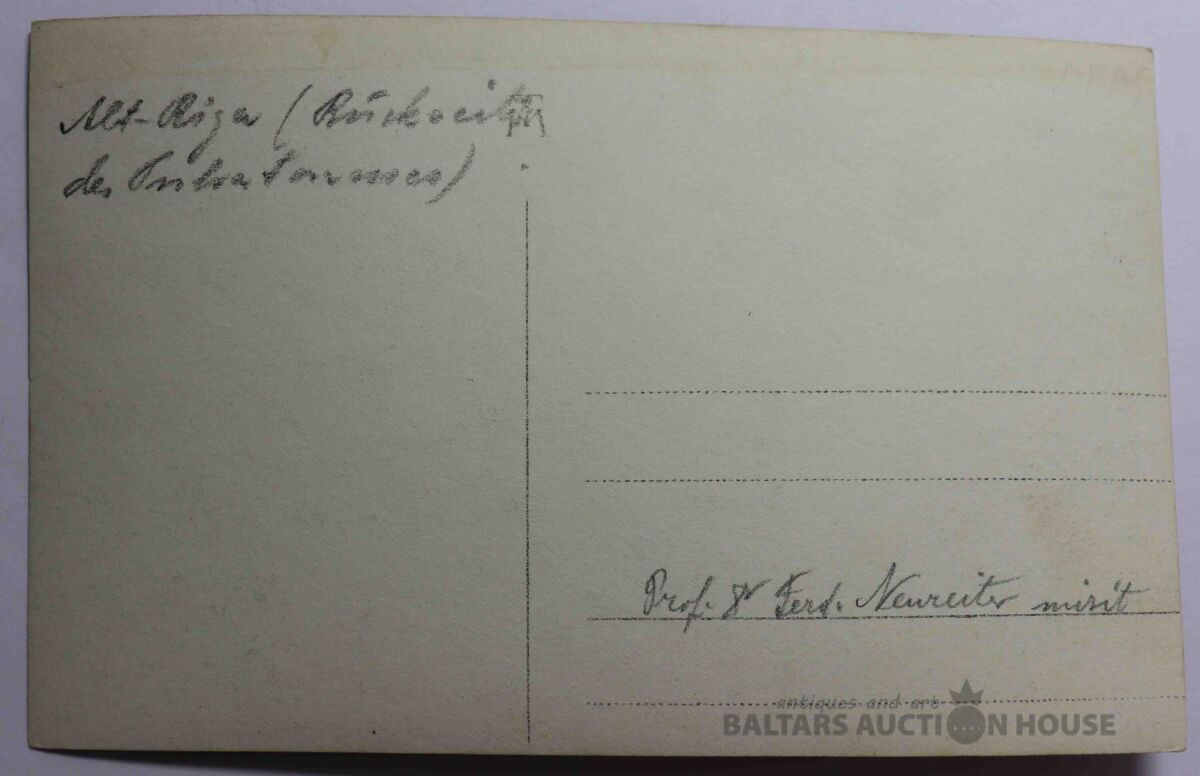 Alt-Riga (Rückseite
des Pulvaturmes)
Prof. Dr Ferd. Neureiter misit
antiques and art
BALTARS AUCTION HOUSE